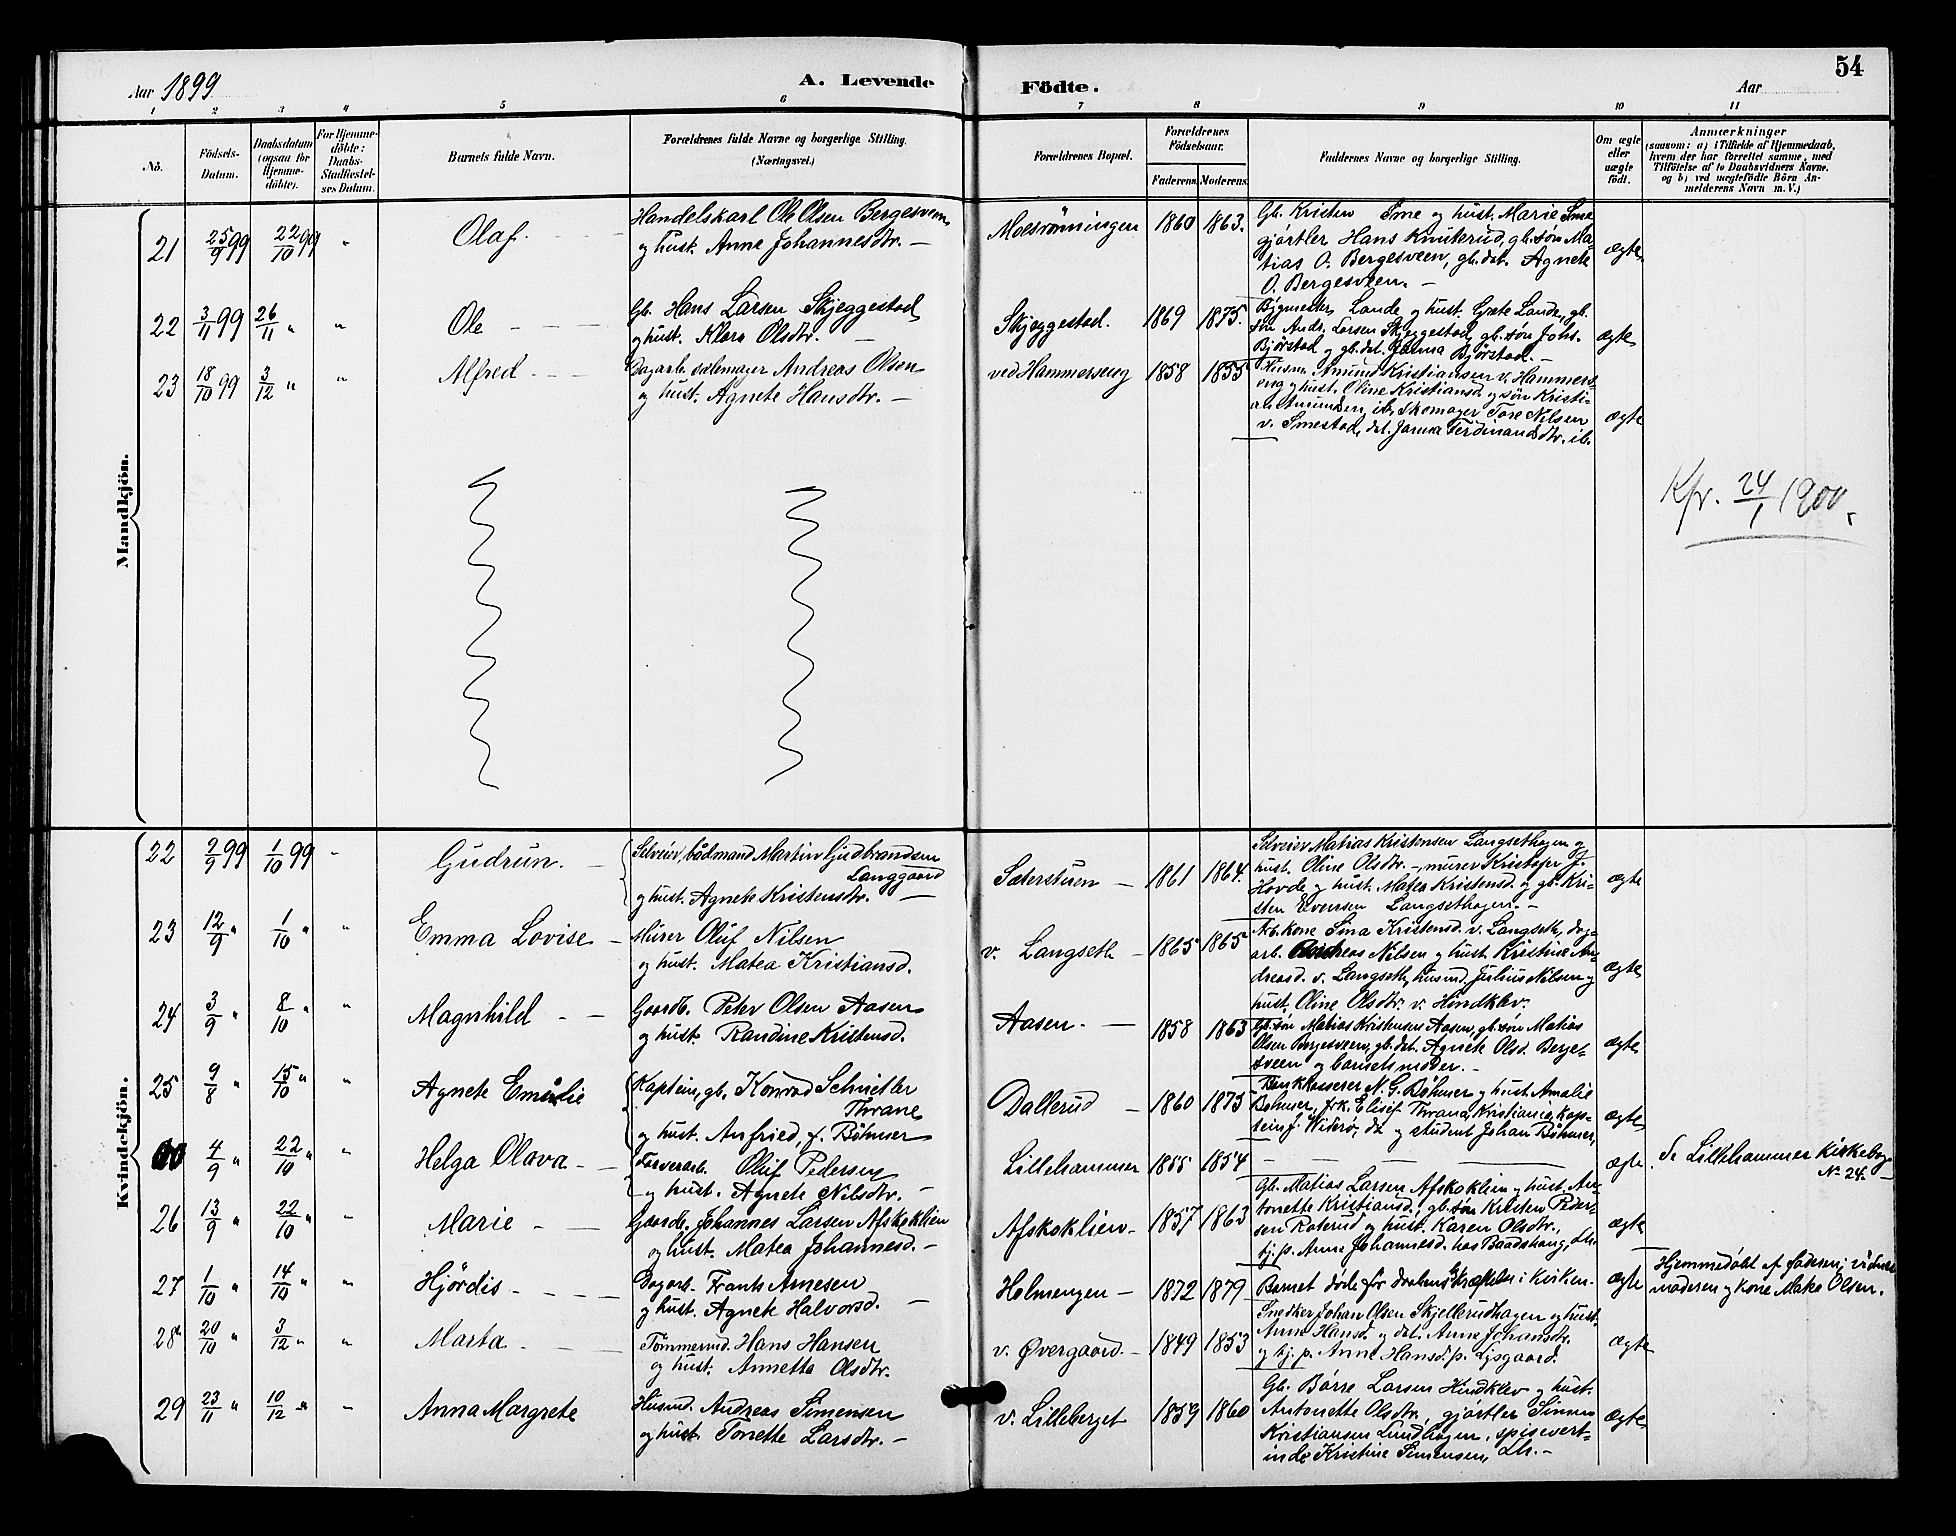 54
Aar 1899
A. Levende
Födte.
Aar
1 2 3 4 5 6 7 8 9 10 11
No.
Födsels-
Datum.
Daabsdatum
(ogsaa for
Hjemme-
döbte).
For Hjemme-
döbte:
Daabs-
Stadfæstel-
ses Datum.
Barnets fulde Navn.
Forældrenes fulde Navne og borgerlige Stilling.
(Næringsvei.)
Forældrenes Bopæl.
Forældrenes
Födselsaar.
Faderens. Moderens.
Faddernes Navne og borgerlige Stilling.
Om ægte
eller
uægte
födt.
Anmærkninger
(saasom: a) i Tilfælde af Hjemmedaab,
hvem der har forrettet samme, med
Tilföielse af to Daabsvidners Navne.
og b) ved uægtefödte Börn An-
melderens Navn m. V.)
Mandkjön.
21 25/9 99 22/10 99 " Olaf. Handelskarl Ole Olsen Bergesveen
og hust. Anne Johannesdtr. —
Moesrønningen 1860 1863.
Gb. Kristen Sme og hust. Marie Sme
gjørtler Hans Knuterud, gb. søn Ma-
tias O. Bergesveen, gb. dat. Agnete
O. Bergesveen. —
ægte
22 3/11 99 26/11 " " Ole Gb. Hans Larsen Skjeggestad
og hust. Klara Olsdtr. —
Skjeggestad. 1869 1875.
Bygmester Lande og hust. Grete Lande, gb.
søn Andr. Larsen Skjeggestad, gb. søn Johs.
Bjørstad og gb. dat. Janna Bjørstad. —
ægte
23 18/10 99 3/12 " " Alfred Dagarb. salemager Andreas Olsen
og hust. Agnete Hansdtr. —
ved Hammerseng 1858 1855
Husm. Amund Kristiansen v. Hammers-
eng og hust. Oline Kristiansd. og søn Kristi-
an Amundsen, ib, skomager Tore Nilsen
v. Smestad, dat. Janna Ferdinandsdtr. ib.
ægte
Kfr. 24/1 1900.
Kvindekjön.
22 2/9 99 1/10 99 " Gudrun. Selveier, bådmand Martin Gudbrandsen
Langgaard
og hust. Agnete Kristensdtr. —
Sæterstuen — 1861 1864.
Selveier Matias Kristensen Langsethagen og
hust. Oline Olsdtr. —, murer Kristofer J.
Hovde og hust. Matea Kristensd. og gb. Kri-
sten Evensen Langsethagen. —
ægte
23 12/9 " 1/10 " " Emma Lovise — Murer Oluf Nilsen
og hust. Matea Kristiansd.
v. Langseth — 1865 1865
Arb. kone Sina Kristensd. v. Langseth, dag-
arb. Andreas Nilsen og hust. Kristine An-
dreasd. v. Langseth, husmd. Julius Nilsen og
hust. Oline Olsdtr. v. Hindklev.
ægte
24 3/9 " 8/10 " " Magnhild — — Gaardb. Peter Olsen Aasen
og hust. Randine Kristensd.
Aasen. — 1858 1863
Gb. søn Matias Kristensen Aasen, gb. søn Matias
Olsen Bergesveen, gb. dat. Agnete Olsd. Berge-
sveen og barnets moder. —
ægte
25 9/8 " 15/10 " " Agnete Emilie Kaptein, gb. Konrad Schnitler
Thrane
og hust. Anfried, f. Bøhmer
Dallerud — 1860 1875
Bankkasserer N. G. Bøhmer og hust. Amalie
Bøhmer, frk. Elisif Thrane, Kristiania, kap-
tein J. Widerø, do og student Johan Bøhmer,
ægte
4/9 " 22/10 " " Helga Olava — Farverarb. Oluf Pedersen
og hust. Agnete Nilsdtr. —
Lillehammer 1855 1854 — — —
ægte
Se Lillehammer kirkebog
No 24.
26 13/9 " 22/10 " " Marie — — Gaardb. Johannes Larsen Afskoklien
og hust. Matea Johannesd. —
Afskoklien — 1857 1863
Gb. Matias Larsen Afskoklien og hust. An-
tonette Kristiansd., gb. søn Kristen Peder-
sen Roterud og hust. Karen Olsdtr.,
tj. p. Anne Johannesd. hos Baadshaug, Lh.
ægte
27 1/10 " 14/10 " " Hjördis — — — Dagarb. Frants Arnesen
og hust. Agnete Halvorsd. —
Holmengen — 1872 1879
Barnet døde før daabens bekræftelse i kirken.
ægte
Hjemmedøbt af faderen; vidner
moderen og kone Mako Olsen.
28 20/10 " 3/12 " " Marta — — Tømmermd. Hans Hansen
og hust. Annette Olsdtr.
v. Øvergaard. — 1849 1853
Snedker Johan Olsen Skjellerudhagen og hust.
Anne Hansd. og dat. Anne Johansdtr.
og tj. p. Anne Hansd. p. Lysgaard.
ægte
29 23/11 " 10/12 " " Anna Margrete Husmd. Andreas Simensen
og hust. Tonette Larsdtr. —
v. Lilleberget 1859 1860
Gb. Børre Larsen Hindklev og hust.
Antonette Olsdtr., gjørtler Simen
Kristiansen Lundhagen, spisevert-
inde Kristine Simensen, Lh. —
ægte